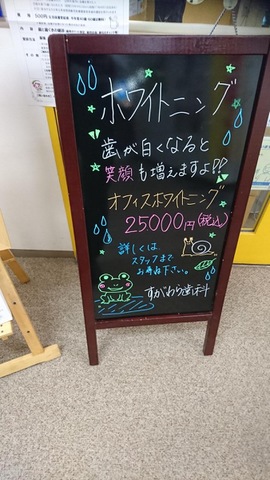 ホワイトニング
歯が白くなると
笑顔も増えますよ!?
オフィスホワイトニング
25000円(税込)
詳しくは、
スタッフまで
お尋ね下さい。
すがわら歯科